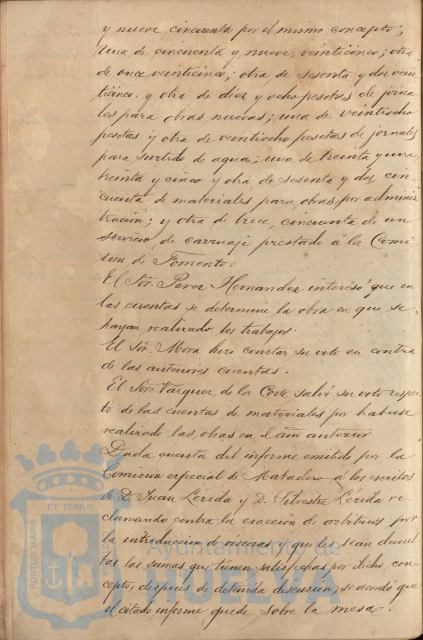 y nueve, cincuenta por el mismo concepto;
una de cincuenta y nueve, veinticinco; otra
de once veinticinco; otra de sesenta y dos vein
ticinco. y otra de diez y ocho pesetas de jorna
les para obras nuevas; una de veintiocho
pesetas y otra de veintiocho pesetas de jornales
para surtido de agua; una de treinta y una
treinta y cinco y otra de sesenta y dos, cin
cuenta de materiales para obras por adminis
tración; y otra de trece, cincuenta de un
servicio de carruaje prestado á la Comi
sión de Fomento.
El Sor. Perez Hernandez interesó que en
las cuentas se determine la obra en que se
hayan realizado los trabajos.
El Sor. Mora hizo constar su voto en contra
de las anteriores cuentas.
El Sor. Vazquez de la Corte salvó su voto respec
to de las cuentas de materiales por haberse
realizado las obras en el año anterior
Dada cuenta del informe emitido por la
Comisión especial de Matadero á los escritos
de D. Juan Lerida y D. Silvestre Lerida re
clamando contra la exacción de arbitrios por
la introducción de reses y que les sean devuel
tas las sumas que tienen satisfechas por dicho con
cepto, después de detenida discusión, se acordó que
el citado informe quede sobre la mesa.
PORTUS MARIS
ET TERRAE
Ayuntamiento de
HUELVA